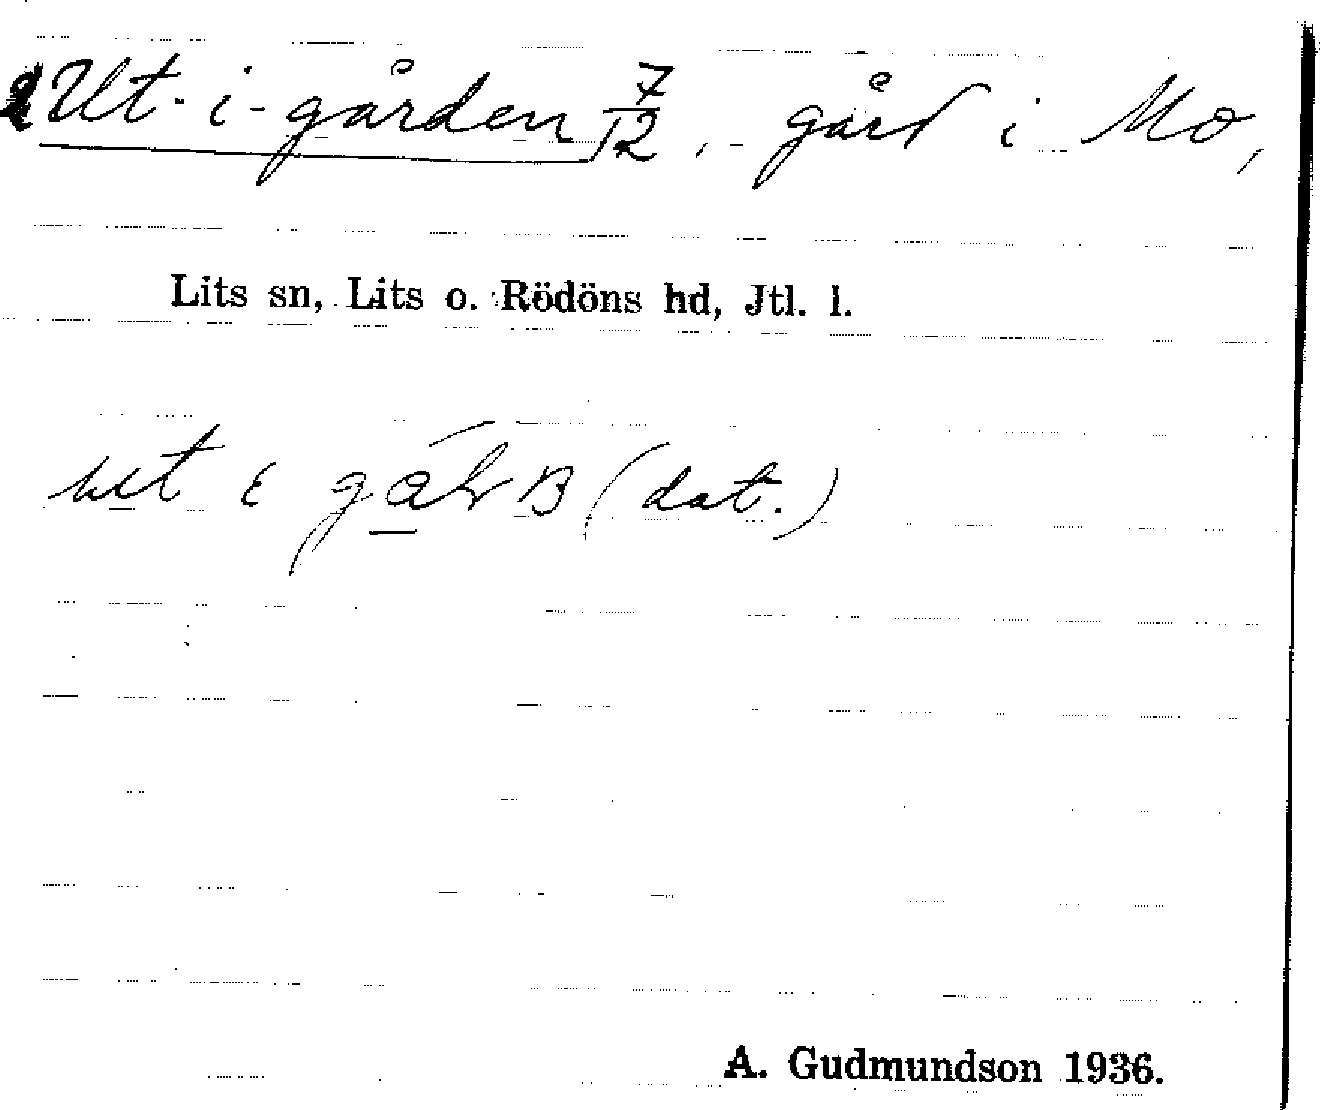 Ut-i-gården 7/2, gård i Mo,
Lits sn, Lits o. Rödöns hd, Jtl. l.
(dat.)
A. Gudmundson 1936.